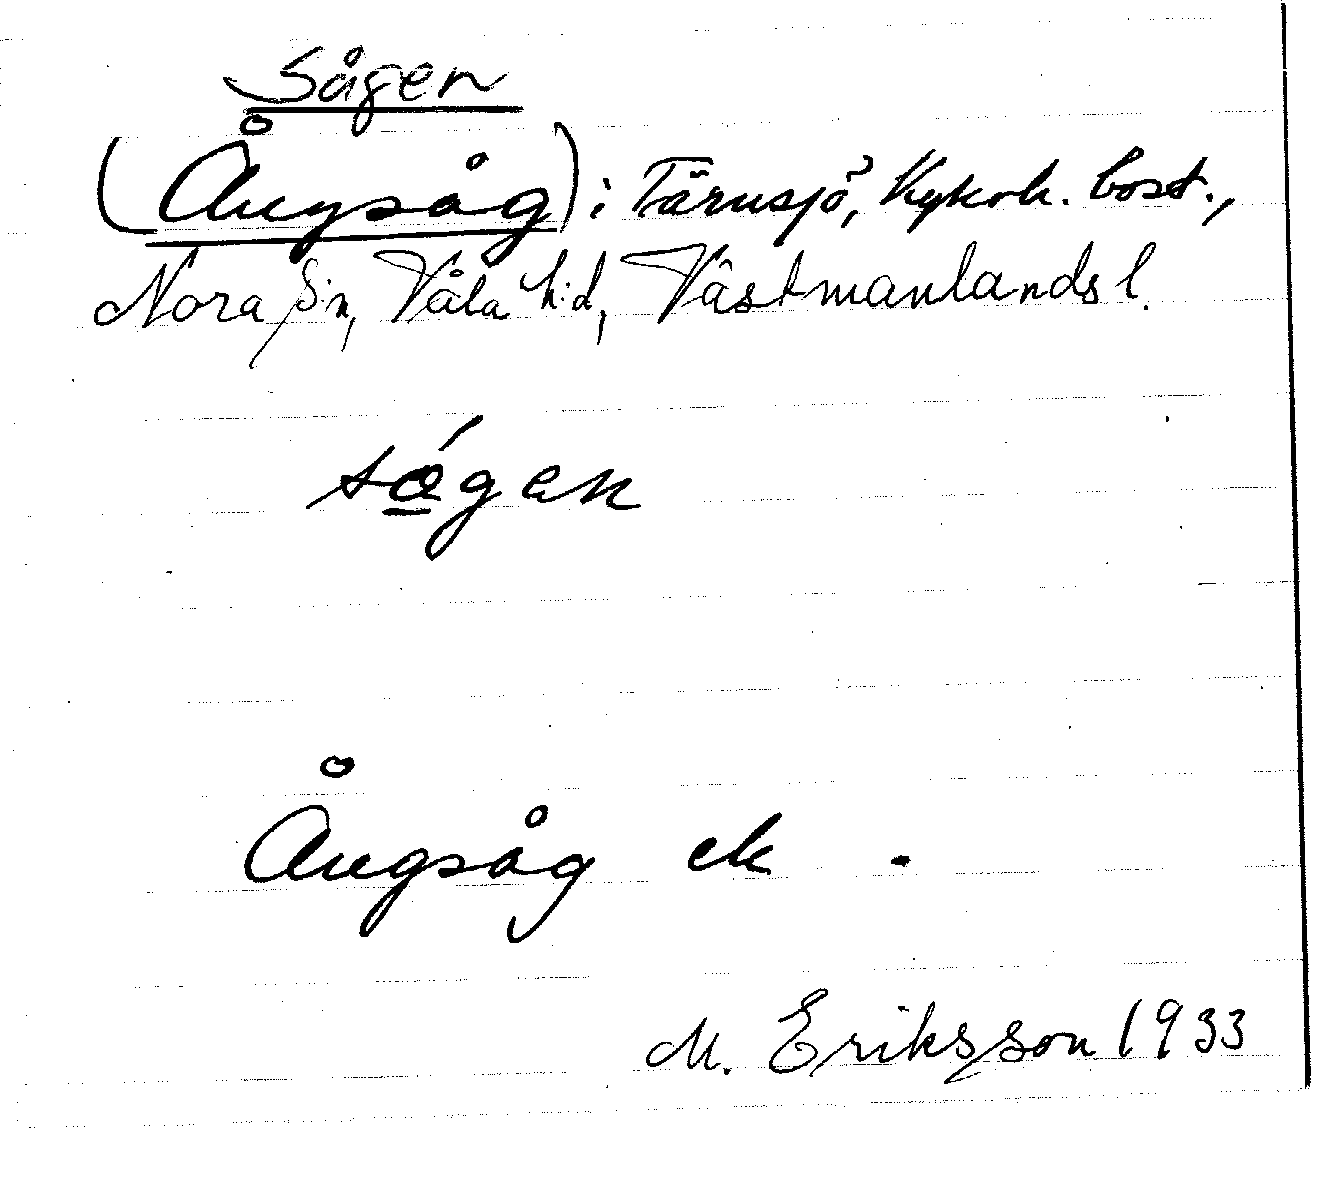 Sågen
(Ångsåg) i Tärnsjö, Kykok. bost.,
Nora s:n, Våla h:d, Västmanlands l.
sågen
Ångsåg ek .
M. Eriksson 1933